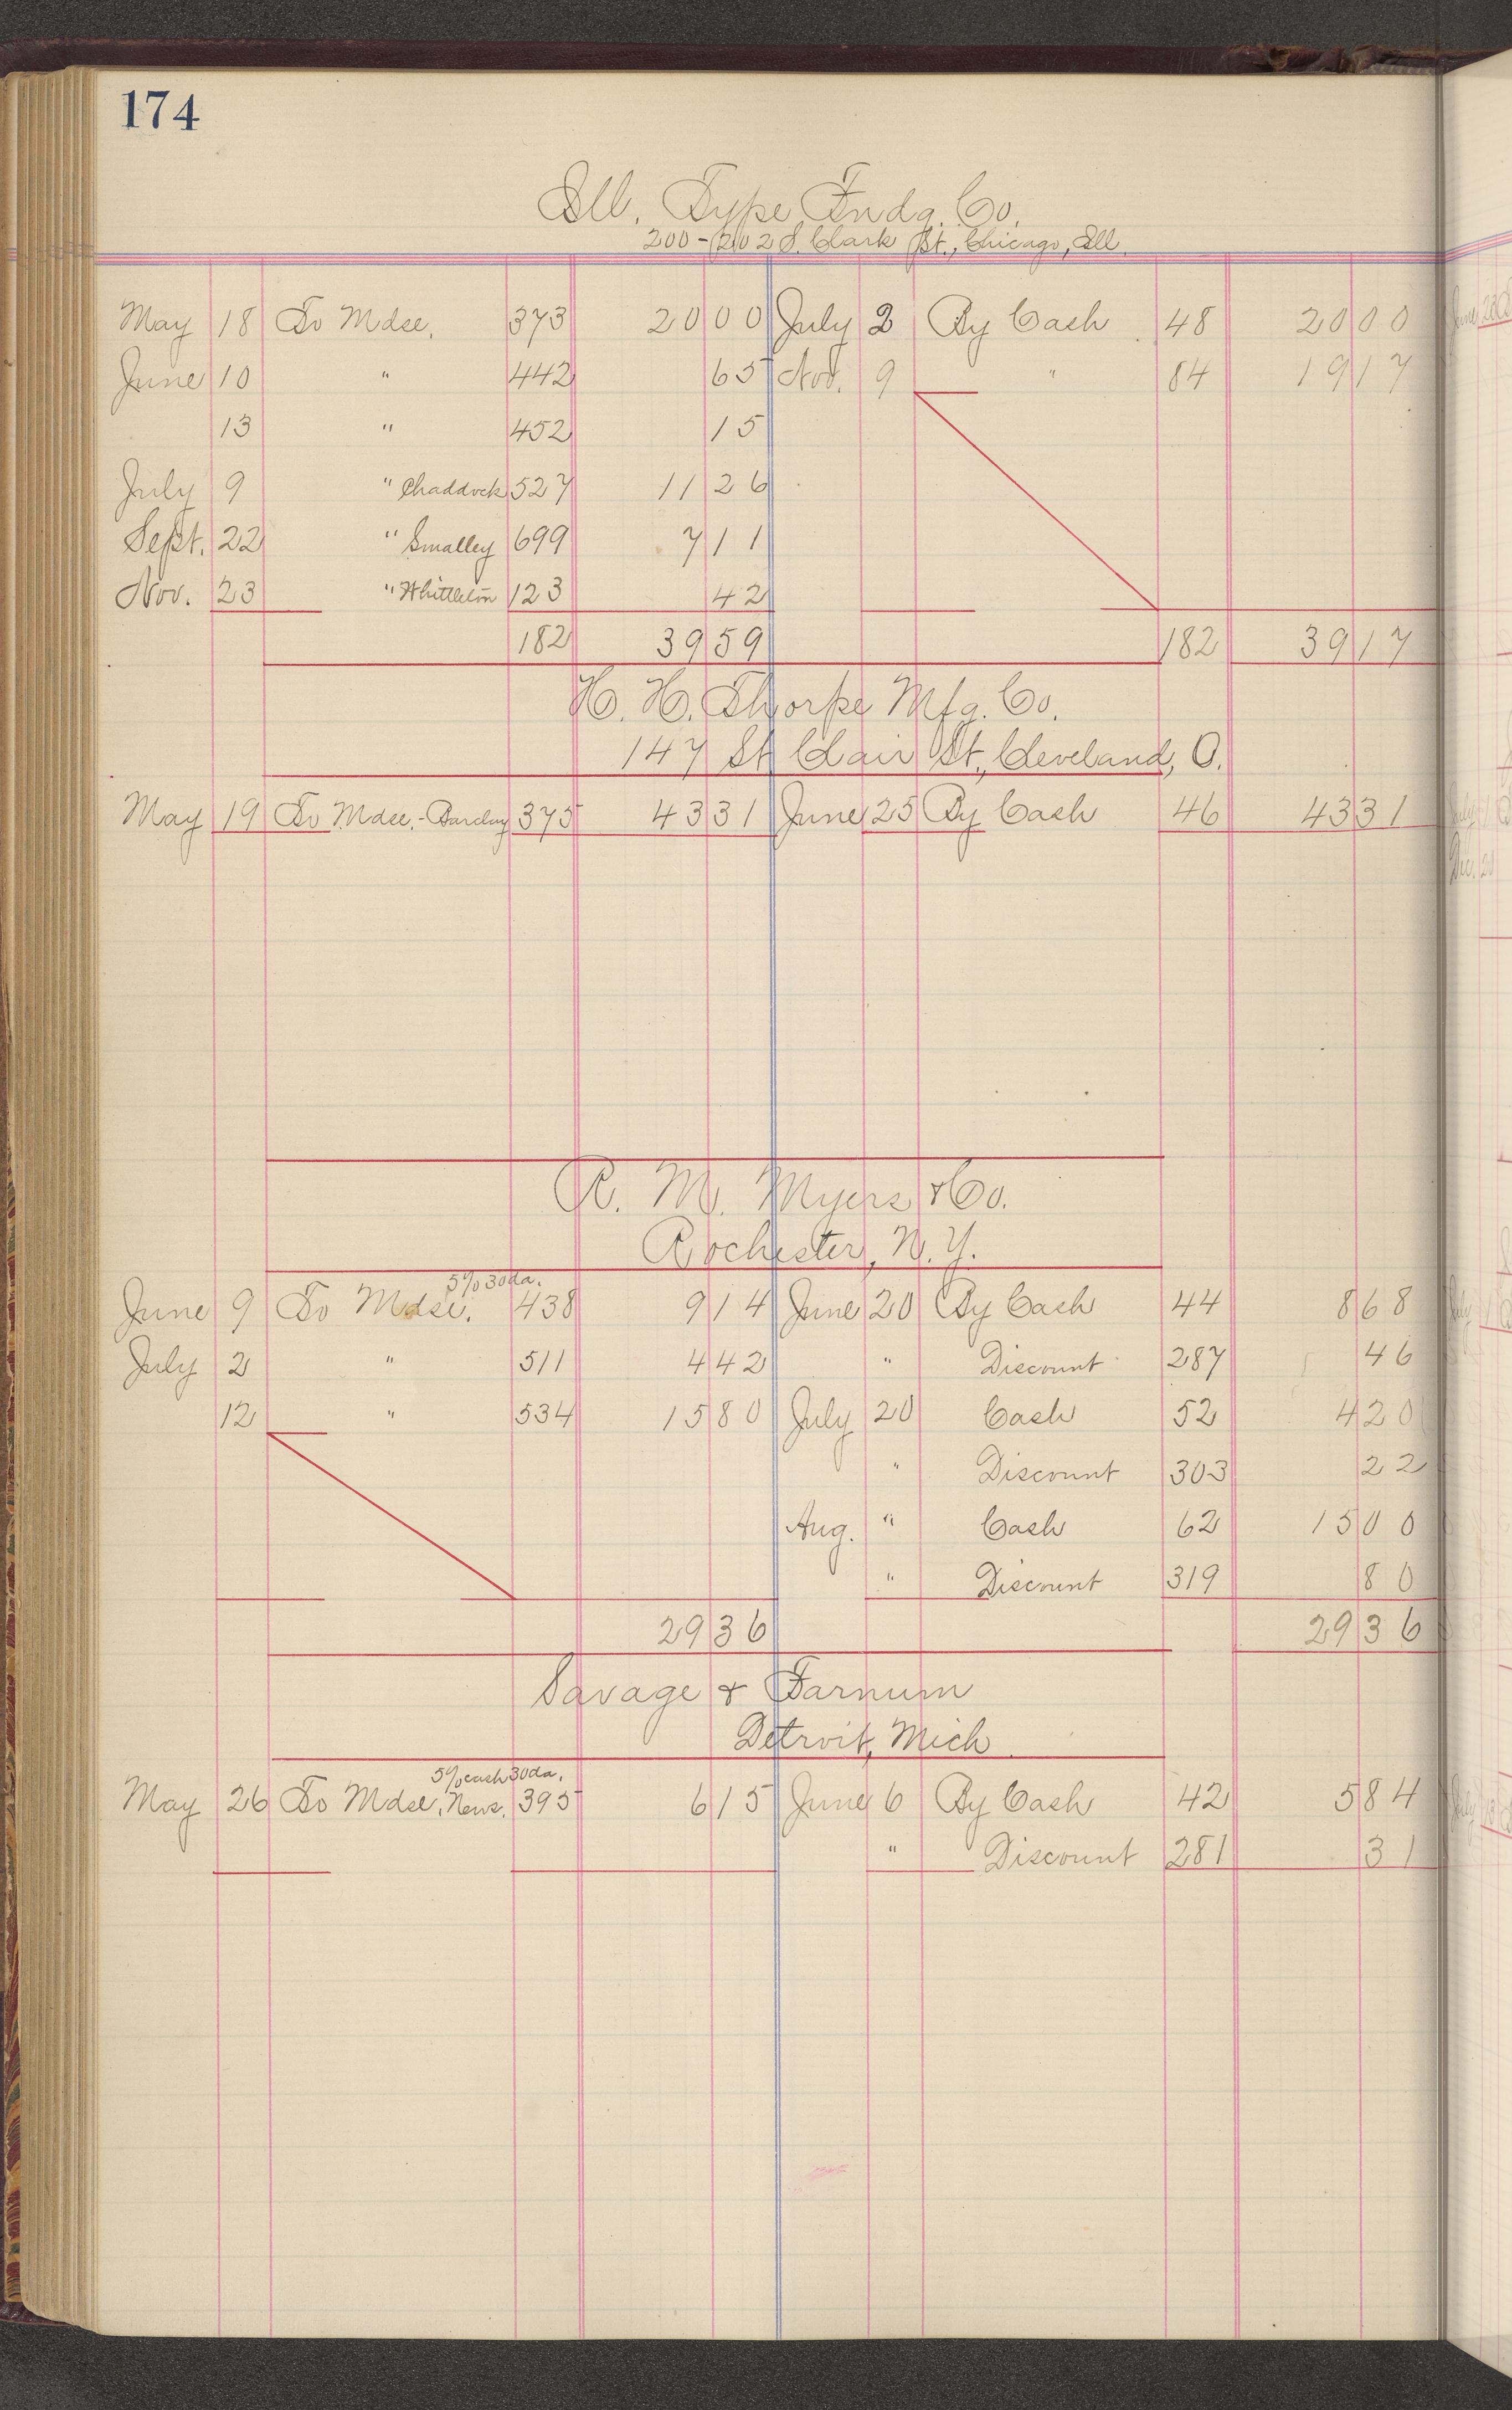 174
Ill. Type Fndg. Co.
200-202 S. Clark St., Chicago, Ill.
May 18 To Mdse. 373 20 00 July 2 By Cash 48 20 00
June 10 " 442 65 Nov. 9 " 84 19 17
13 " 452 15
July 9 " Chaddock 527 11 26
Sept. 22 " Smalley 699 7 11
Nov. 23 " Whittleton 123 42
182 39 59 182 39 17
H. H. Thorpe Mfg. Co.
147 St. Clair St., Cleveland, O.
May 19 To Mdse.- Barclay 375 43 31 June 25 By Cash 46 43 31
R. M. Myers & Co.
Rochester, N.Y.
5% 30 da.
June 9 To Mdse. 438 9 14 June 20 By Cash 44 8 68
July 2 " 511 4 42 " Discount 287 46
12 " 534 15 80 July 20 Cash 52 4 20
" Discount 303 22
Aug. " Cash 62 15 00
" Discount 319 80
29 36 29 36
Savage & Farnum
Detroit, Mich
5% cash 30 da.
May 26 To Mdse. News. 395 6 15 June 6 By Cash 42 5 84
" Discount 281 31